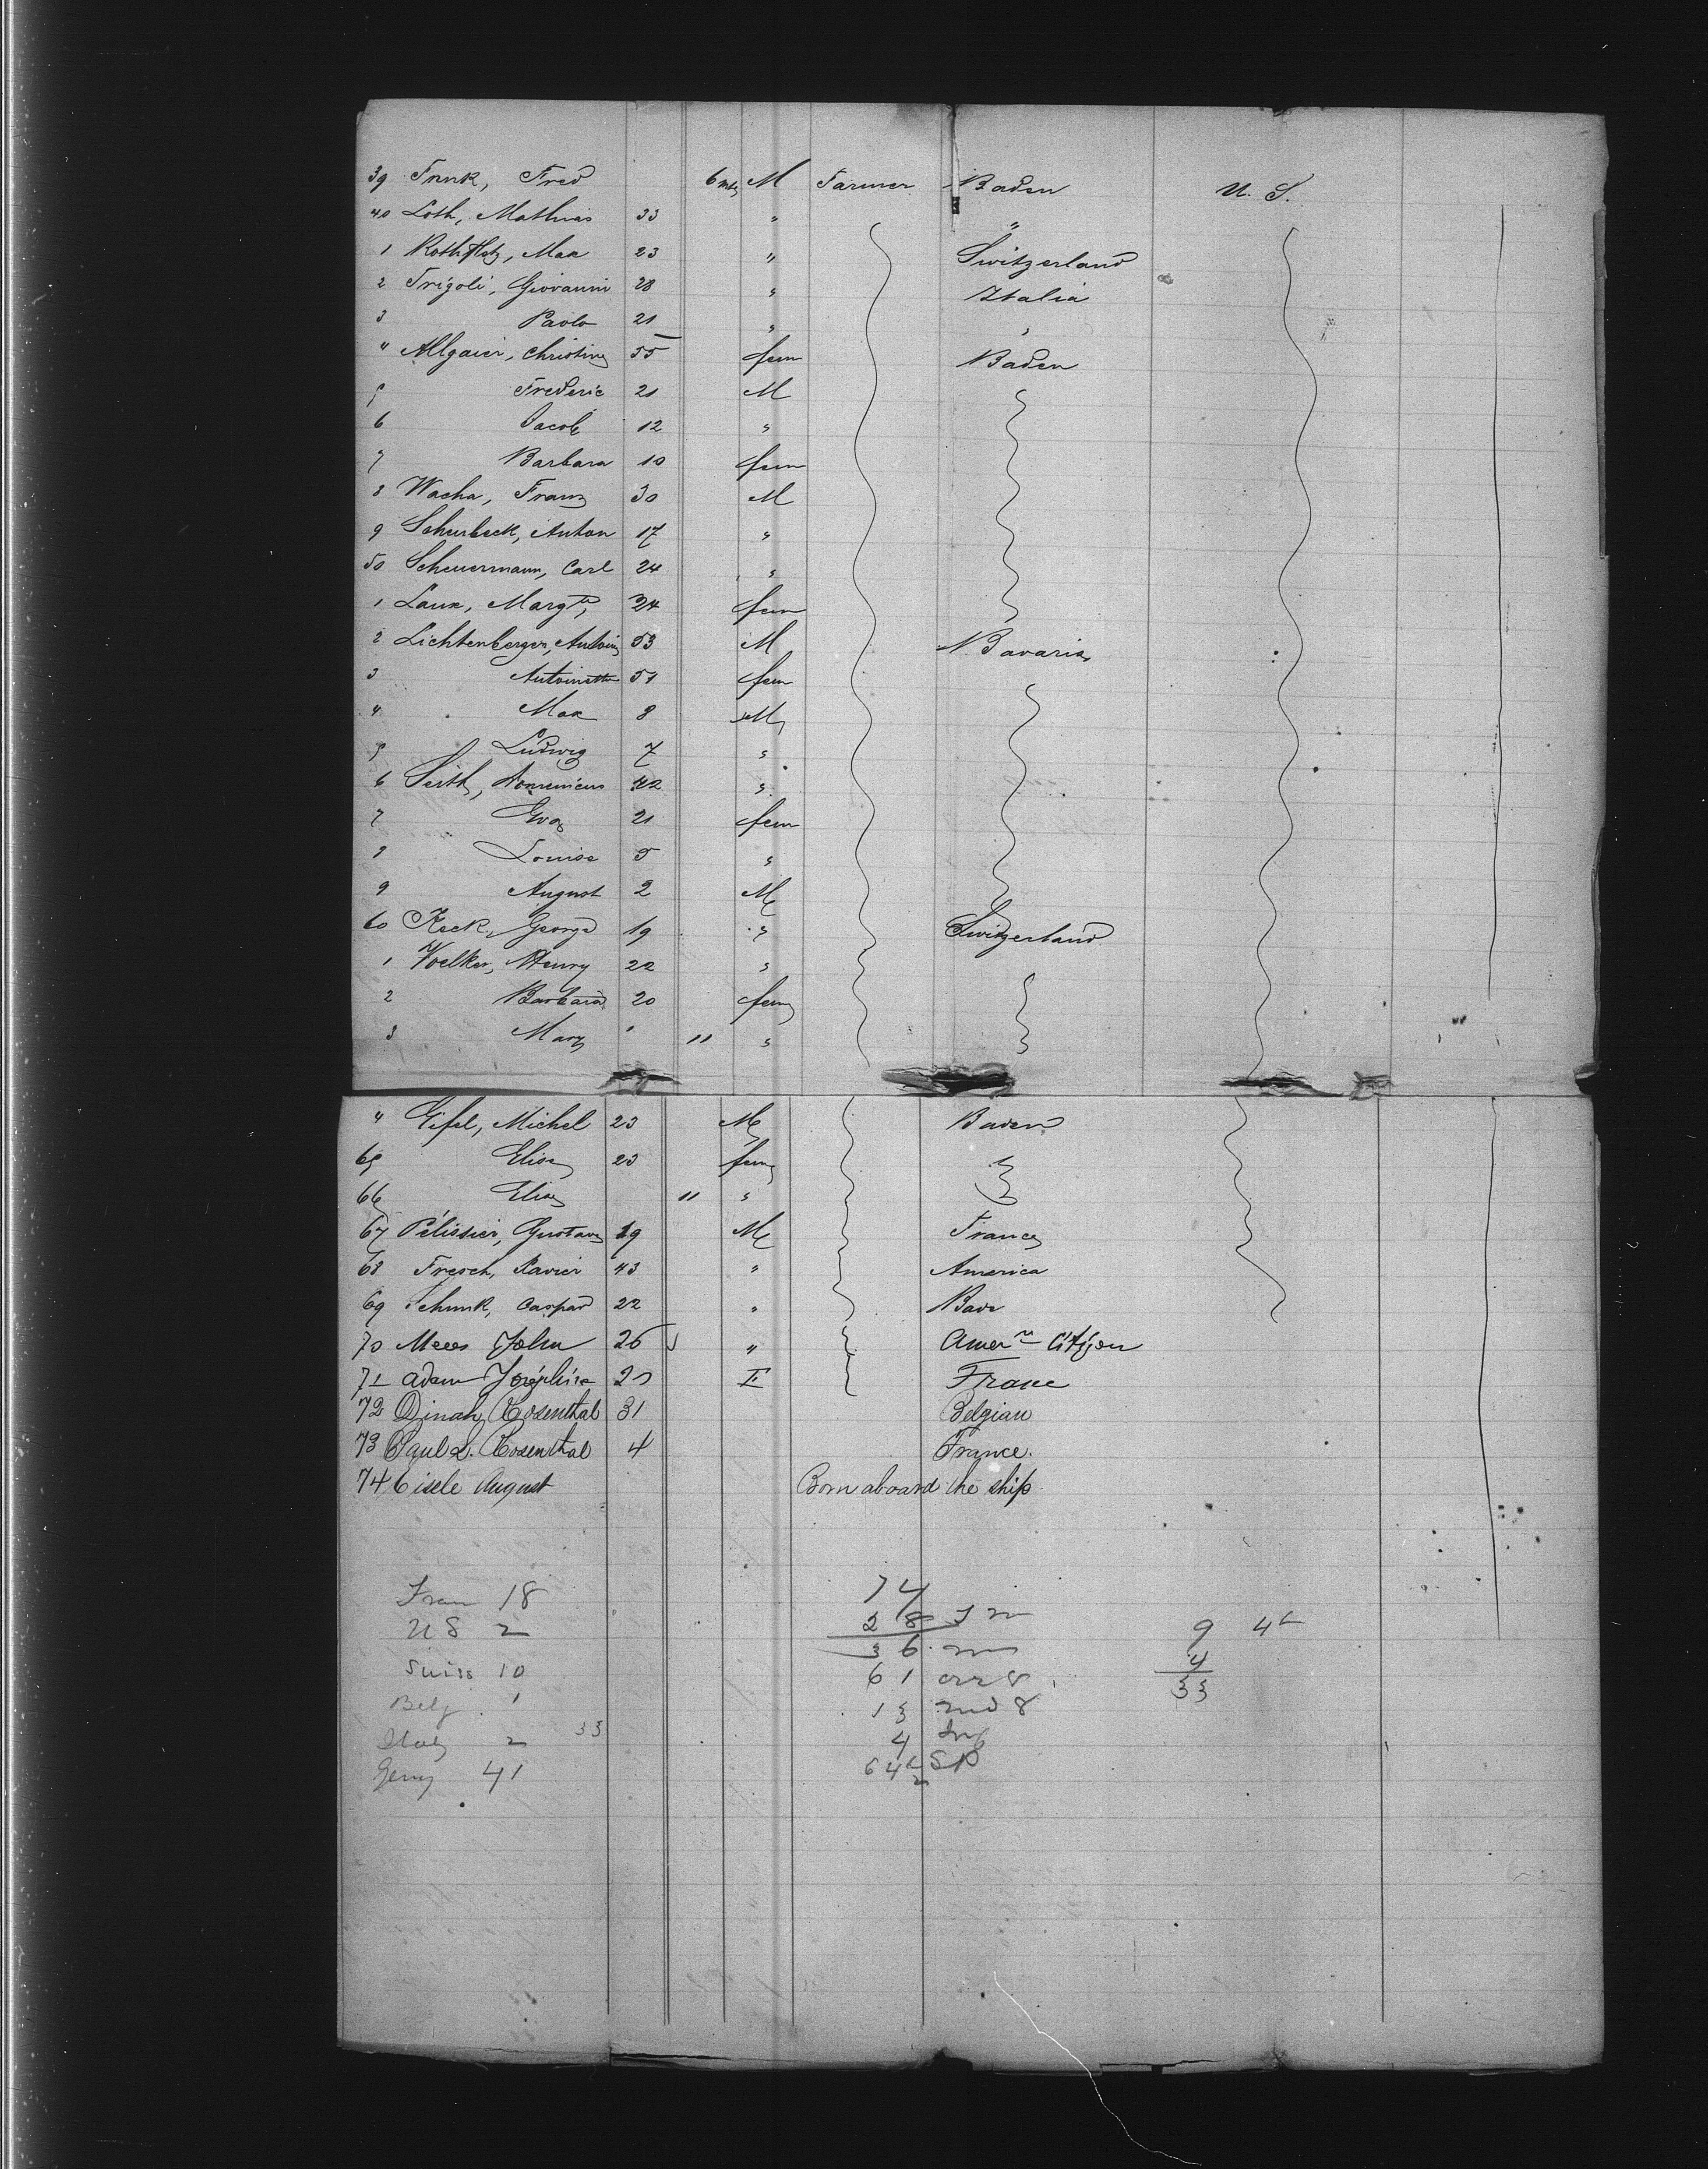 39 Frank, Fred 6 mts M Farmer Baden U. S.
40 Loth, Mathias 33 " "
1 Max 23 " Switzerland
2 Frigoli, Giovanni 28 " Italia
3 Paolo 21 " "
" Allgaier, Christine 55 fem Baden
5 Frederic 21 M
6 Jacob 12 "
7 Barbara 10 fem
8 Wacha, Franz 30 M
9 Schurbeck, Anton 17 "
50 Scheuermann, Carl 24 "
1 Laux, Margth 24 fem
2 Lichtenberger, Antoine 53 M Bavaria
3 Antoinette 51 fem
4 Max 8 M
5 Ludwig 7 "
6 Seith, Domenicus 42 "
7 Eva 21 fem
8 Louise 5 "
9 August 2 M
60 Keck, George 19 " Switzerland
1 Voelker, Henry 22 "
2 Barbara 20 fem
3 Mary " 11 "
" Eifel, Michel 23 M Baden
65 Elise 23 fem
66 Elise 11 "
67 Pélissier, Gustave 19 M France
68 Fresch, Xavier 43 " America
69 Schunk, Caspar 22 " Bave
70 Mees John 26 " Amern Citizen
71 Adam Joséphine 21 F France
72 Dinah Rosenthal 31 Belgian
73 Paul L. Rosenthal 4 France.
74 Eisele August Born aboard the ship
Fran 18 74
US 2 28 9 4
Suiss 10 36 4
Belg 1 61 33
13
Italy 2 33 4
Germ 41 64